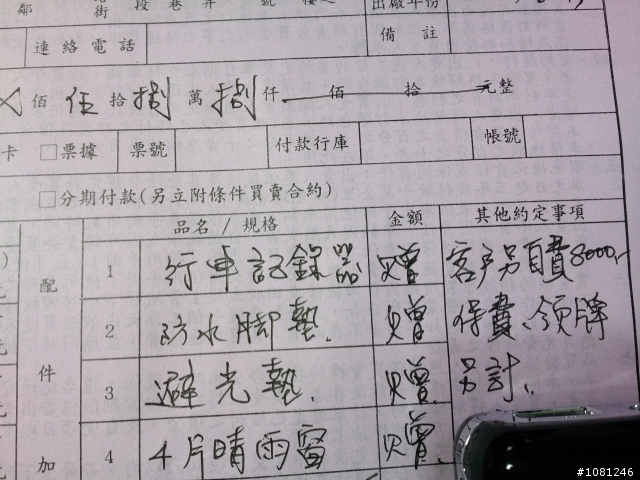 鄰 路街 段 巷 弄 號 樓之
出廠年份
連絡電話
備註
佰伍拾捌萬捌仟 佰 拾 元整
卡 □票據 票號 付款行庫 帳號
□分期付款(另立附條件買賣合約)
品名 / 規格 金額 其他約定事項
配件加
1 行車記錄器 贈
2 防水脚墊. 贈
3 避光墊. 贈.
4 4片晴雨窗 贈.
客戶另自費8000,-
保費、領牌
另計.
#1081246